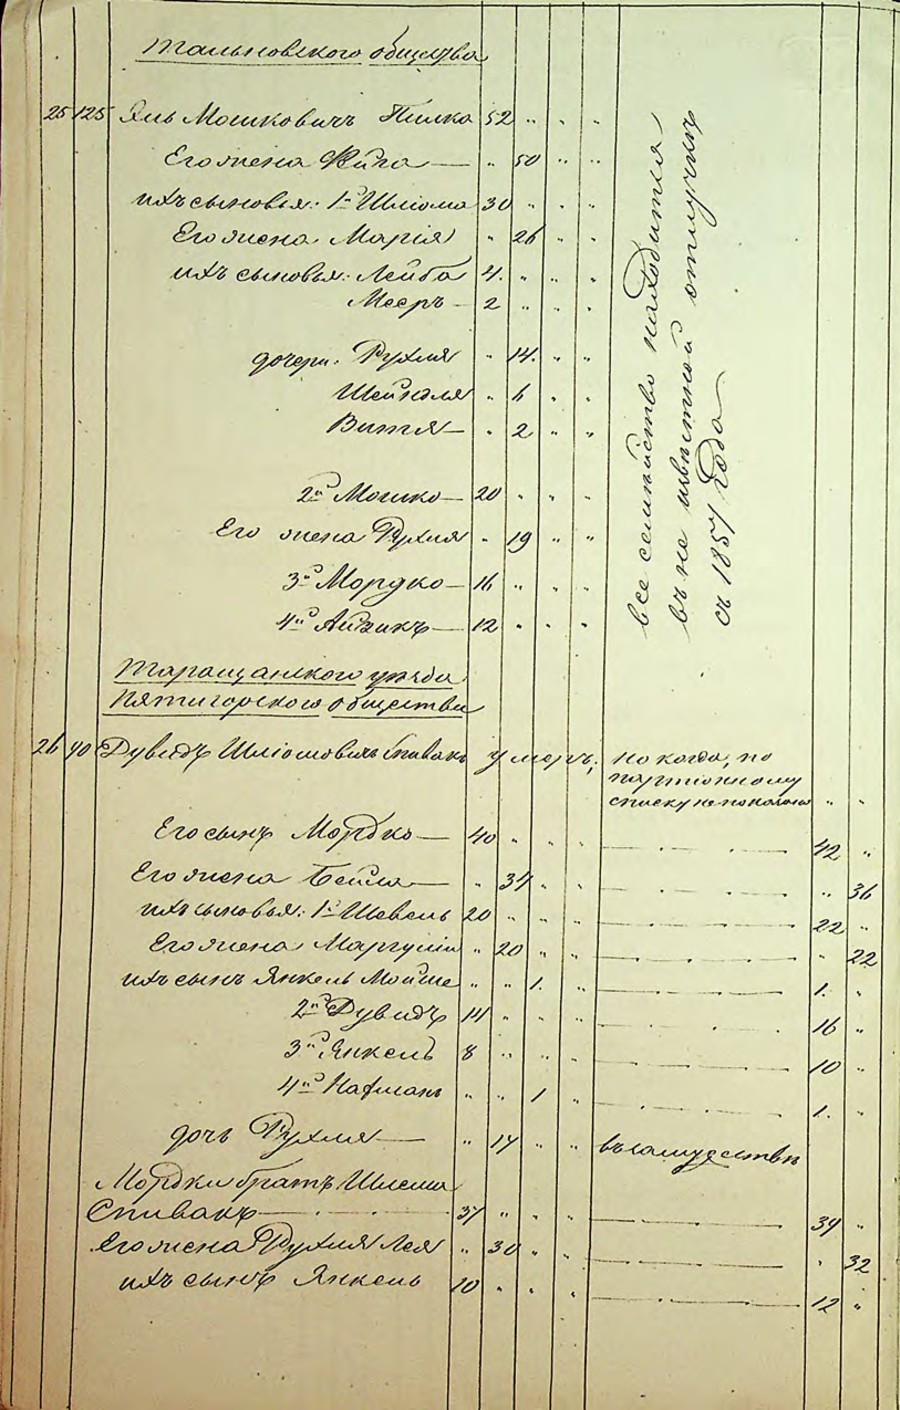 Тальновского общества
25 125 Яль Мошковичъ Пилка 52 " " "
Его жена Фейга — " 50 " "
ихъ сыновья: 1й Шліома 30 " " "
Его жена Марія " 26 " "
ихъ сыновья: Лейба 4. " " "
Мееръ — 2 " " "
дочери: Рухля " 14. " "
Шейндля " 6 " "
Витя — " 2 " "
2й Мошко — 20 " " "
Его жена Рухля " 19 " "
3й Мордко — 16 " " "
4й Айзикъ — 12 " " "
все семейство находится
въ не извѣстной отлучкѣ
съ 1857 года
Таращанского уѣзда
Пятигорского общества
26 40 Дувидъ Шліомовичъ Спивакъ умеръ, но когда, по
партіонному
списку не показано " "
Его сынъ Мордко — 40 " " " — 42 "
Его жена Бейла — " 34 " " — " 36
ихъ сыновья: 1й Шевель 20 " " " — 22 "
Его жена Маргуля " 20 " " — " 22
ихъ сынъ Янкель Мойше " " 1. " — 1. "
2й Дувидъ 14 " " " — 16 "
3й Янкель 8 " " " — 10 "
4й Нахманъ " " 1 " — 1. "
дочь Рухля — " 14 " " въ замужествѣ
Мордки братъ Шлема
Спивакъ — 37 " " " — 39 "
Его жена Рухля Лея " 30 " " — " 32
ихъ сынъ Янкель 10 " " " — 12 "